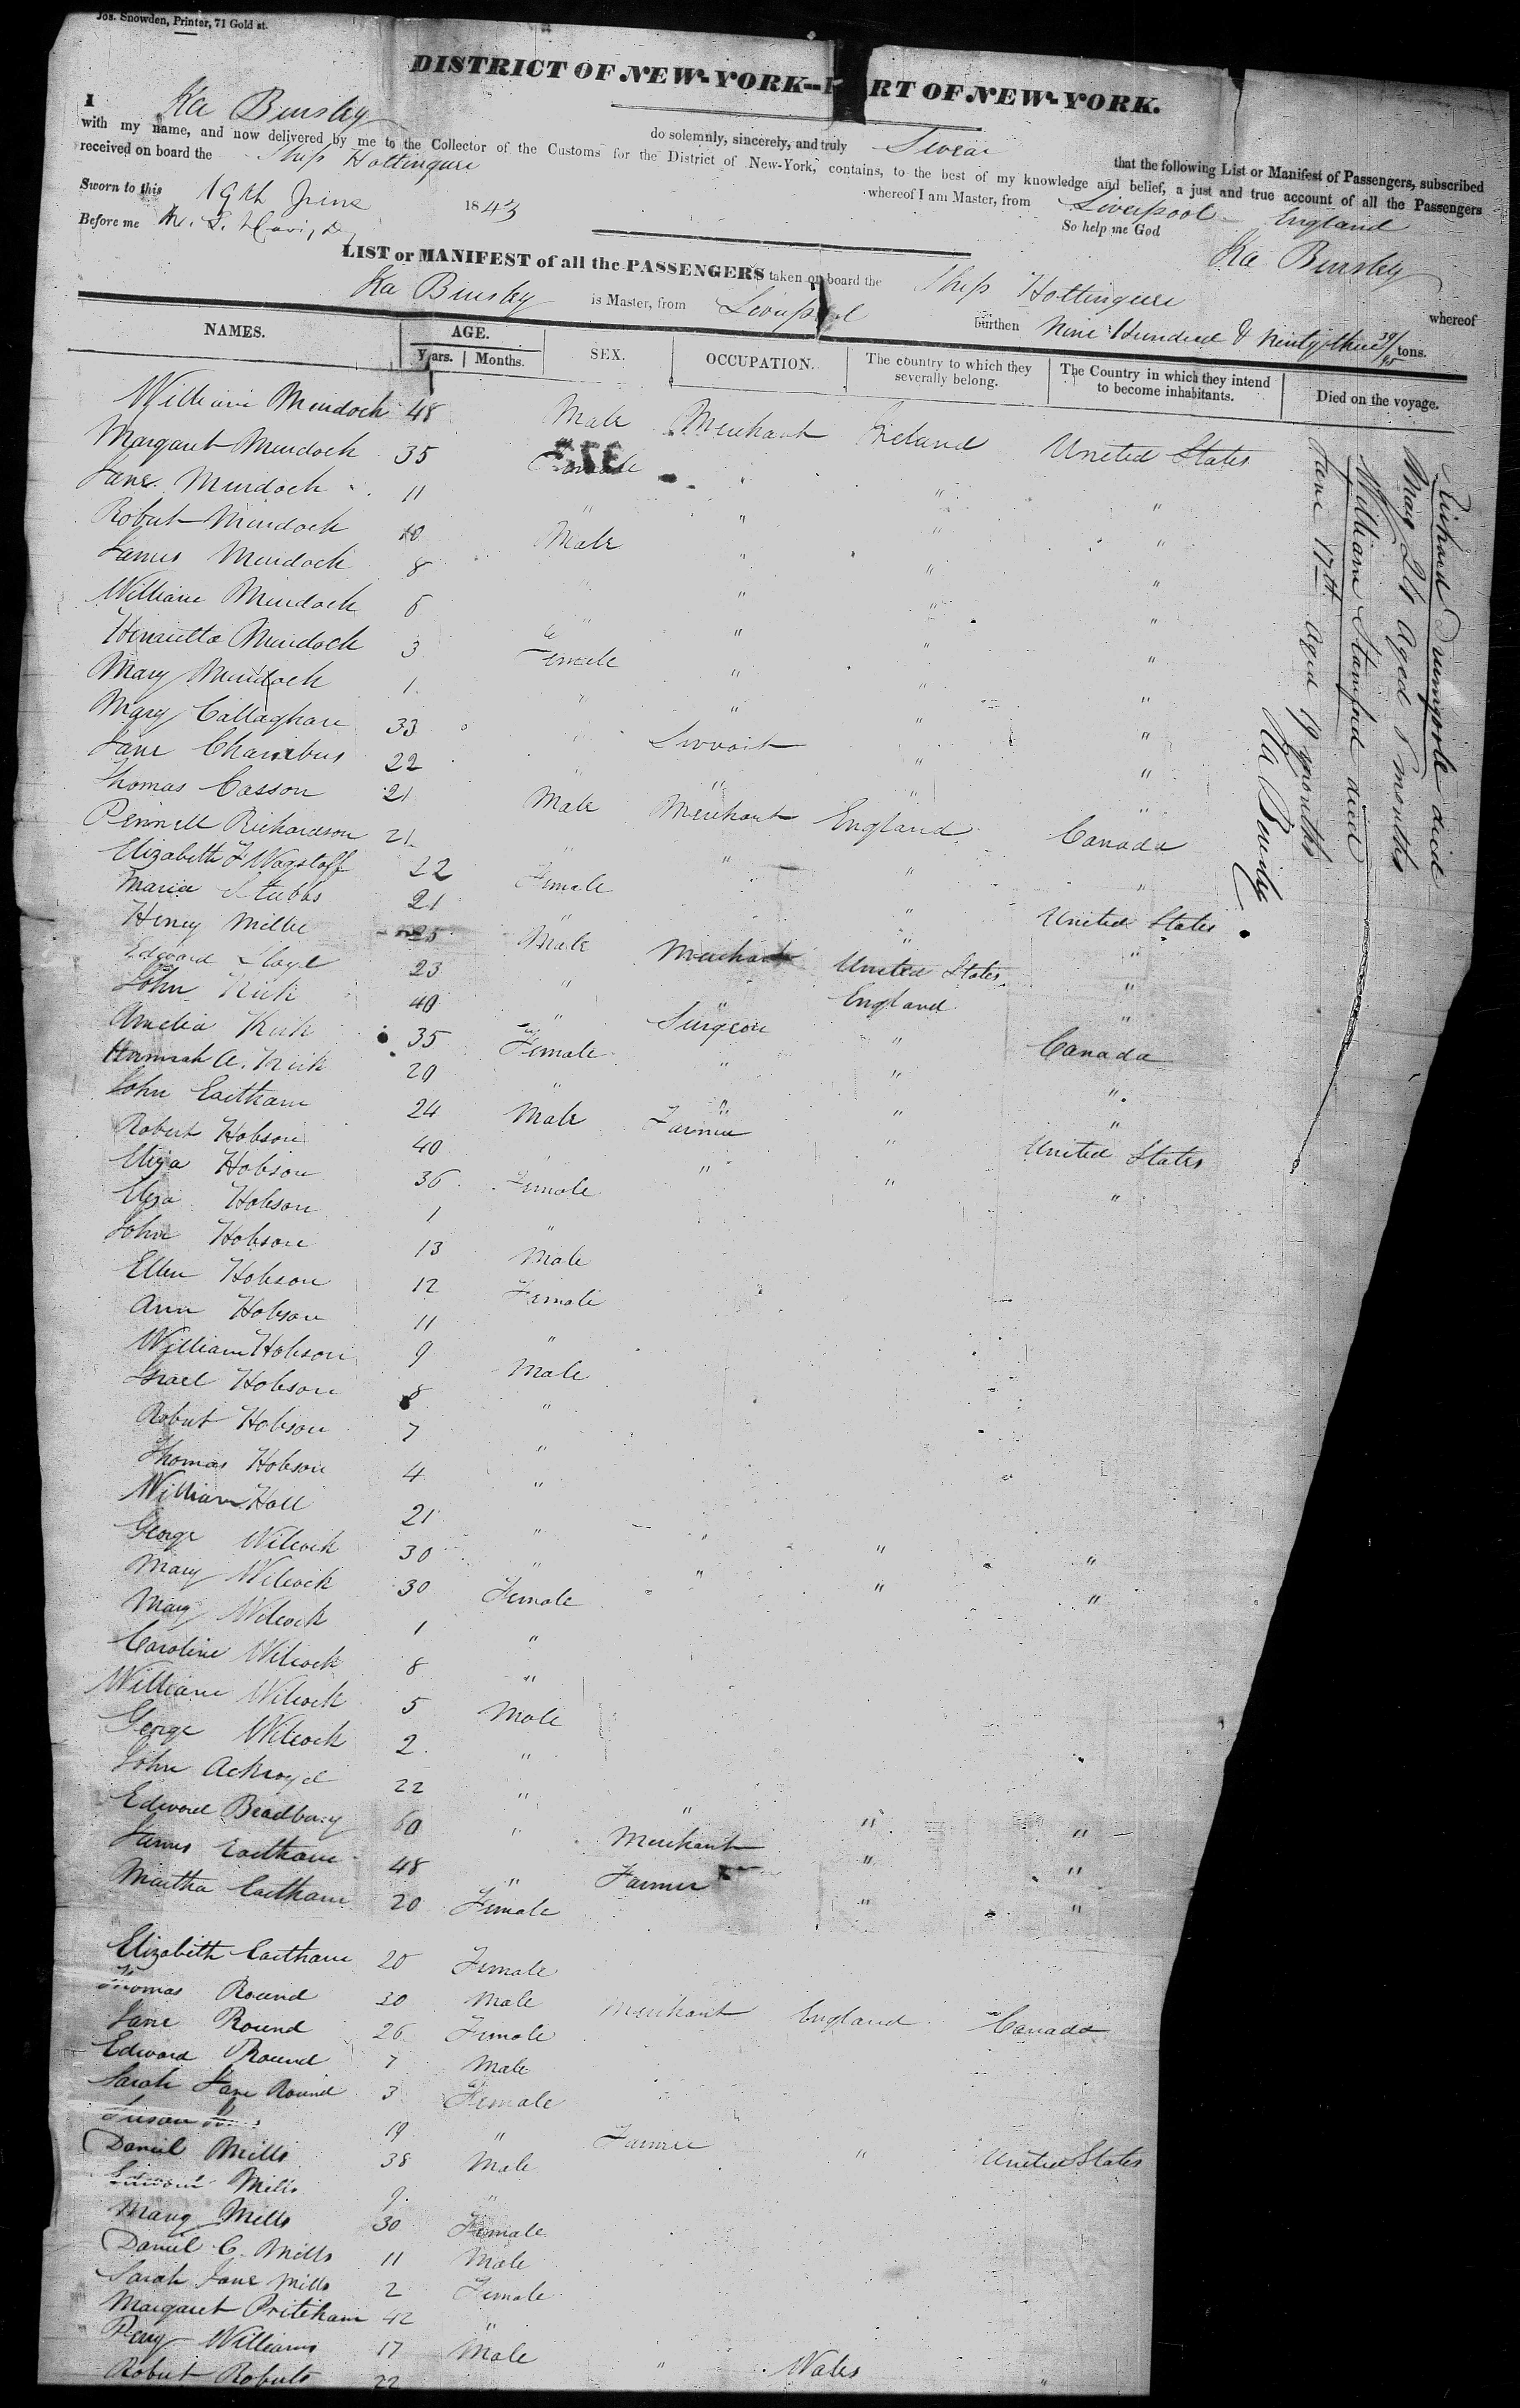 Jos. Snowden, Printer, 71 Gold st.
DISTRICT OF NEW-YORK--P RT OF NEW-YORK.
I Ira Bursley do solemnly, sincerely, and truly Swear that the following List or Manifest of Passengers, subscribed
with my name, and now delivered by me to the Collector of the Customs for the District of New-York, contains, to the best of my knowledge and belief, a just and true account of all the Passengers
received on board the Ship Hottinguer whereof I am Master, from Liverpool England
Sworn to this 19th June 1843 So help me God
Before me Ira Bursley
LIST or MANIFEST of all the PASSENGERS taken on board the Ship Hottinguer whereof
Ira Bursley is Master, from Liverpool burthen Nine Hundred & Ninty three 39/95 tons.
NAMES. AGE. SEX. OCCUPATION. The country to which they severally belong. The Country in which they intend to become inhabitants. Died on the voyage.
Years. Months.
William Murdock 48 Male Merchant Ireland United States
Margaret Murdock 35 Female " " "
Jane Murdock 11 " " " "
Robert Murdock 10 Male " " "
James Murdock 8 " " " "
William Murdock 5 " " " "
Henrietta Murdock 3 Female " " "
Mary Murdock 1 " " " "
Mary Callaghan 33 " Servant " "
Jane Chambers 22 " " " "
Thomas Casson 21 Male Merchant England Canada
Pennell Richardson 21 " " " "
Elizabeth F Wagstaff 22 Female " United States
Maria Stubbs 21 " " "
Henry Miller 25 Male Merchant United States "
Edward Lloyd 23 " " England "
John Kirk 40 " Surgeon " Canada
Amelia Kirk 35 Female " " "
Hannah A. Kirk 20 " " " "
John Eastham 24 Male Farmer " United States
Robert Hobson 40 " " " "
Eliza Hobson 36 Female
Eliza Hobson 1 "
John Hobson 13 Male
Ellen Hobson 12 Female
Ann Hobson 11 "
William Hobson 9 Male
Israel Hobson 8 "
Robert Hobson 7 "
Thomas Hobson 4 "
William Hall 21 " " " "
George Wilcock 30 " " " "
Mary Wilcock 30 Female
Mary Wilcock 1 "
Caroline Wilcock 8 "
William Wilcock 5 Male
George Wilcock 2 "
John Ackroyd 22 " " " "
Edward Bradbury 60 " Merchant " "
James Eastham 48 " Farmer " "
Martha Eastham 20 Female
Elizabeth Eastham 20 Female
Thomas Round 30 Male Merchant England Canada
Jane Round 26 Female
Edward Round 7 Male
Sarah Jane Round 3 Female
Susan 19 "
Daniel Mills 38 Male Farmer " United States
Edward Mills 9 "
Mary Mills 30 Female
Daniel C. Mills 11 Male
Sarah Jane Mills 2 Female
Margaret Pritcham 42 "
Perry Williams 17 Male
Robert Roberts 22 " Wales "
Richard died
May 24 Aged 8 months
William Stamford died
June 17th Aged 19 months
Ira Bursley